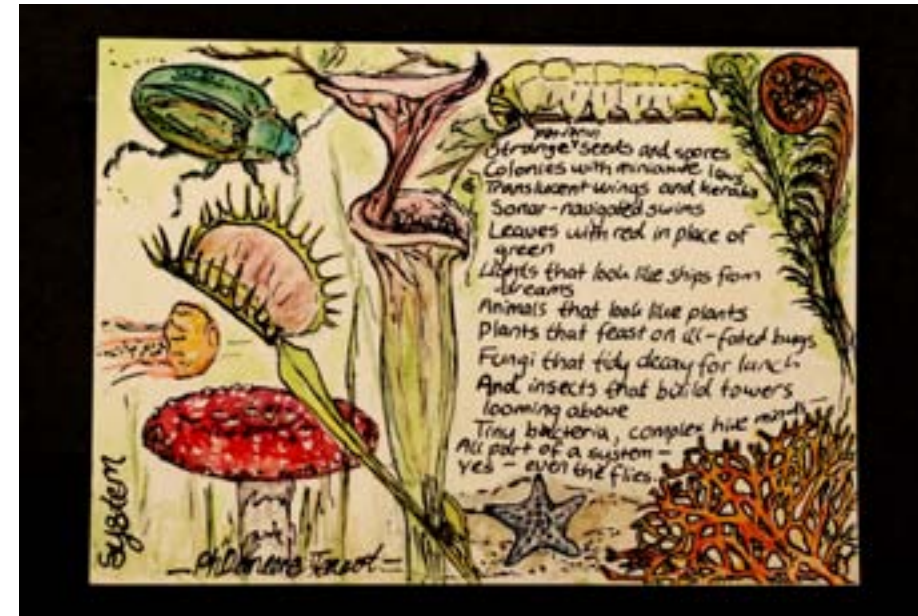 Strange seeds and spores
Colonies with miniature laws
Translucent wings and keratin
Sonar-navigated swims
Leaves with red in place of
green
Lights that look like ships from
dreams
Animals that look like plants
Plants that feast on ill-fated bugs
Fungi that tidy decay for lunch
And insects that build towers
looming above
Tiny bacteria, complex hive minds—
All part of a system—
yes — even the flies.
System